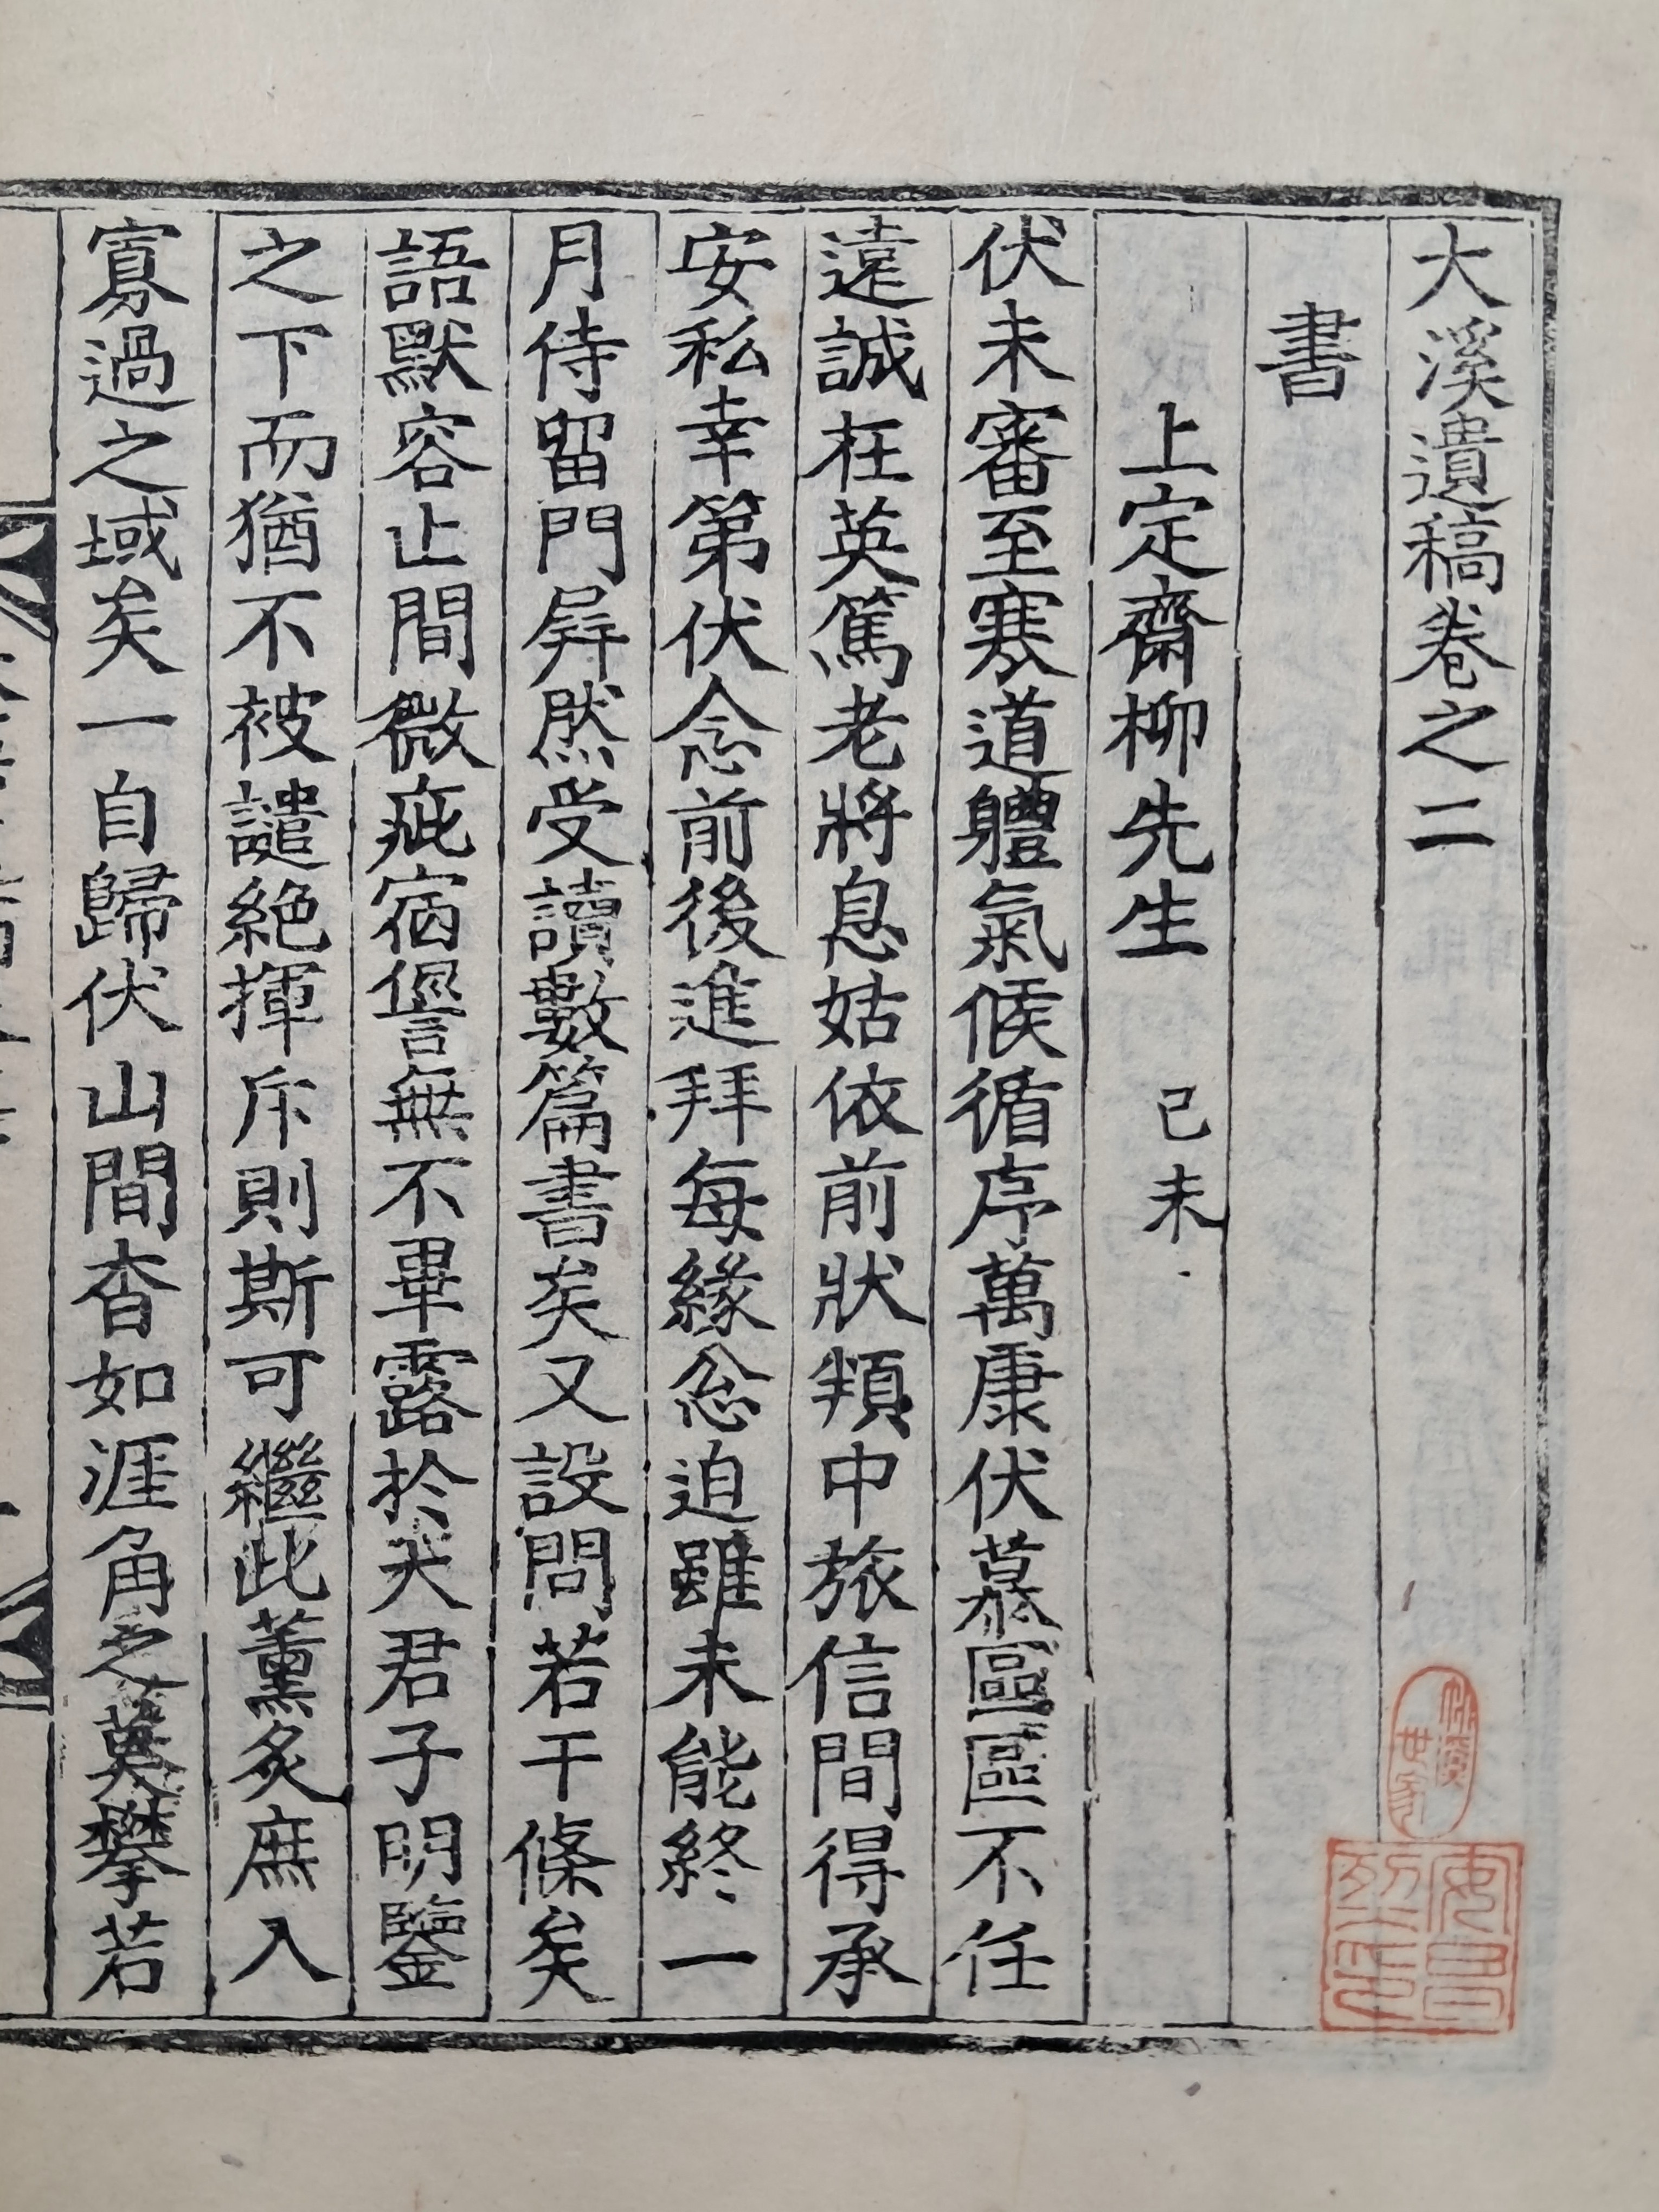 大溪遺稿卷之二
書
上定齋柳先生 己未
伏未審至寒道軆氣候循序萬康伏慕區區不任
遠誠在英篤老將息姑依前狀頖中旅信間得承
安私幸第伏念前後進拜每緣忩迫雖未能終一
月侍留門屛然受讀數篇書矣又設問若干條矣
語默容止間微疵宿諐無不畢露於大君子明鑒
之下而猶不被譴絶揮斥則斯可繼此薰炙庶入
寡過之域矣一自歸伏山間杳如涯角之莫攀若